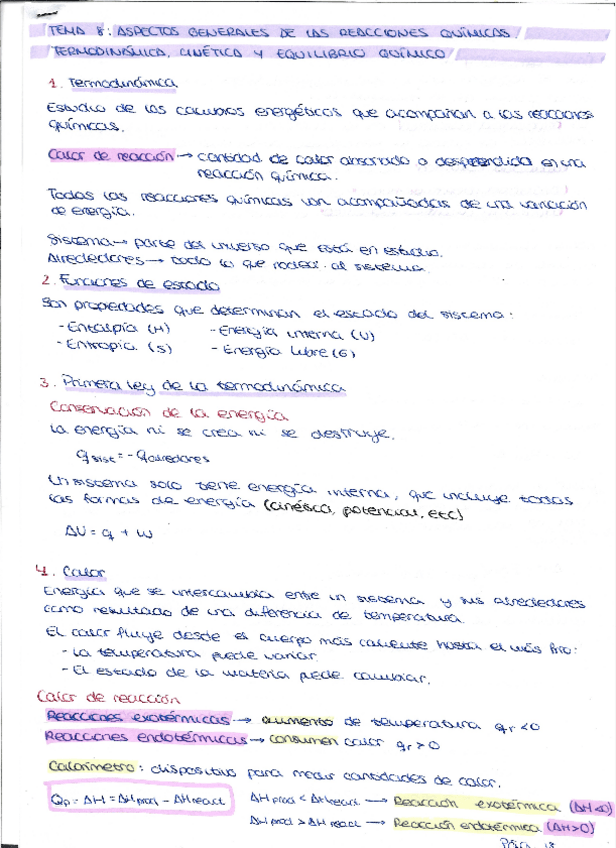 TEMA 8: ASPECTOS GENERALES DE LAS REACCIONES QUÍMICAS.
TERMODINÁMICA, CINÉTICA Y EQUILIBRIO QUÍMICO
1. Termodinámica
Estudio de los cambios energéticos que acompañan a las reacciones
químicas.
Calor de reacción → cantidad de calor absorbido o desprendida en una
reacción química.
Todas las reacciones químicas van acompañadas de una variación
de energía.
Sistema → parte del universo que está en estudio.
Alrededores → todo lo que rodea al sistema.
2. Funciones de estado
Son propiedades que determinan el estado del sistema:
- Entalpía (H) - Energía interna (U)
- Entropía (S) - Energía libre (G)
3. Primera ley de la termodinámica
Conservación de la energía
La energía ni se crea ni se destruye.
q sist = - q alrededores
Un sistema solo tiene energía interna, que incluye todas
las formas de energía (cinética, potencial, etc)
ΔU = q + W
4. Calor
Energía que se intercambia entre un sistema y sus alrededores
como resultado de una diferencia de temperatura.
El calor fluye desde el cuerpo más caliente hasta el más frío:
- La temperatura puede variar.
- El estado de la materia puede cambiar.
Calor de reacción
Reacciones exotérmicas → aumento de temperatura qr < 0
Reacciones endotérmicas → consumen calor qr > 0
Calorímetro: dispositivo para medir cantidades de calor.
Qp = ΔH = ΔH prod - ΔH react ΔH prod < ΔH react → Reacción exotérmica (ΔH<0)
ΔH prod > ΔH react → Reacción endotérmica (ΔH>0)